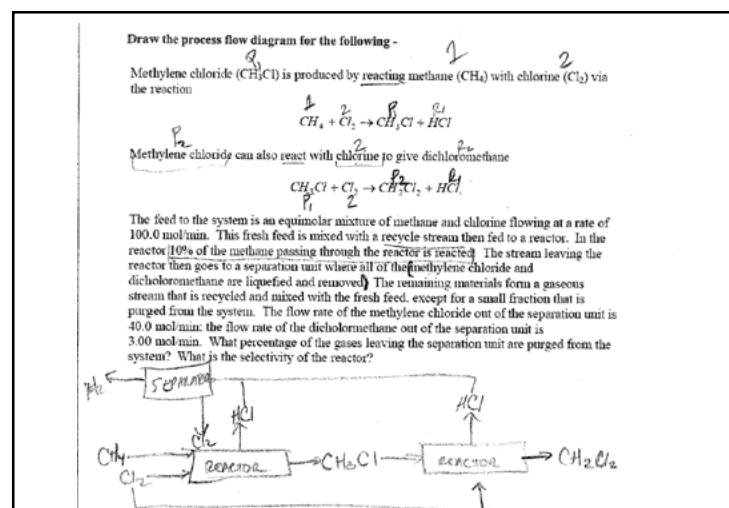 Draw the process flow diagram for the following -
1 2
Methylene chloride (CH3Cl) is produced by reacting methane (CH4) with chlorine (Cl2) via
the reaction
1 2
CH4 + Cl2 → CH3Cl + HCl
P2 2
Methylene chloride can also react with chlorine to give dichloromethane
P2
CH3Cl + Cl2 → CH2Cl2 + HCl
P1 2
The feed to the system is an equimolar mixture of methane and chlorine flowing at a rate of
100.0 mol/min. This fresh feed is mixed with a recycle stream then fed to a reactor. In the
reactor 10% of the methane passing through the reactor is reacted. The stream leaving the
reactor then goes to a separation unit where all of the methylene chloride and
dicholoromethane are liquefied and removed. The remaining materials form a gaseous
stream that is recycled and mixed with the fresh feed, except for a small fraction that is
purged from the system. The flow rate of the methylene chloride out of the separation unit is
40.0 mol/min; the flow rate of the dicholormethane out of the separation unit is
3.00 mol/min. What percentage of the gases leaving the separation unit are purged from the
system? What is the selectivity of the reactor?
HCl HCl
Cl2
CH4
Cl2 REACTOR CH3Cl REACTOR CH2Cl2